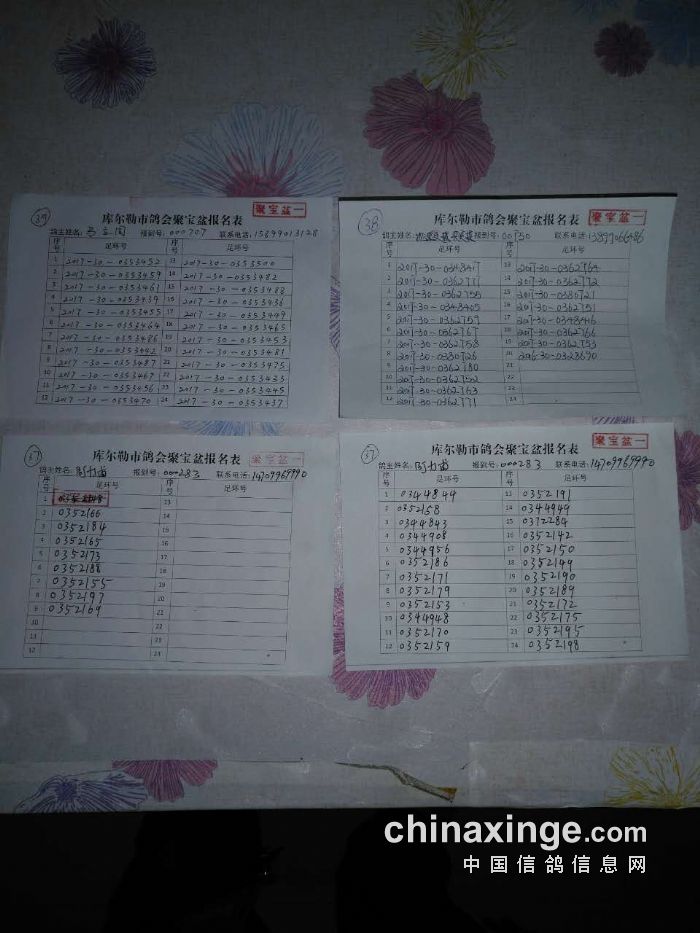 39
库尔勒市鸽会聚宝盆报名表
聚宝盆一
鸽主姓名: 报到号: 000707 联系电话: 15899013128
序号 足环号 序号 足环号
1 2017-30-0353452 13 2017-30-0353500
2 2017-30-0353459 14 2017-30-0353482
3 2017-30-0353461 15 2017-30-0353488
4 2017-30-0353439 16 2017-30-0353436
5 2017-30-0353455 17 2017-30-0353449
6 2017-30-0353464 18 2017-30-0353465
7 2017-30-0353486 19 2017-30-0353453
8 2017-30-0353442 20 2017-30-0353481
9 2017-30-0353487 21 2017-30-0353475
10 2017-30-0353467 22 2017-30-0353433
11 2017-30-0353456 23 2017-30-0353445
12 2017-30-0353470 24 2017-30-0353437
38
库尔勒市鸽会聚宝盆报名表
聚宝盆一
鸽主姓名: 报到号: 00750 联系电话: 13897066486
序号 足环号 序号 足环号
1 2017-30-0348417 13 2017-30-0362764
2 2017-30-0362777 14 2017-30-0362772
3 2017-30-0362755 15 2017-30-0380721
4 2017-30-0348405 16 2017-30-0362751
5 2017-30-0362757 17 2017-30-0348416
6 2017-30-0362767 18 2017-30-0362766
7 2017-30-0362758 19 2017-30-0362753
8 2017-30-0380726 20 2016-30-0328670
9 2017-30-0362780 21
10 2017-30-0362752 22
11 2017-30-0362763 23
12 2017-30-0362771 24
37
库尔勒市鸽会聚宝盆报名表
聚宝盆一
鸽主姓名: 报到号: 000283 联系电话: 14709969990
序号 足环号 序号 足环号
1 13
2 0352166 14
3 0352184 15
4 0352165 16
5 0352173 17
6 0352188 18
7 0352155 19
8 0352197 20
9 0352169 21
10 22
11 23
12 24
37
库尔勒市鸽会聚宝盆报名表
聚宝盆一
鸽主姓名: 报到号: 000283 联系电话: 14709969990
序号 足环号 序号 足环号
1 0344849 13 0352191
2 0352158 14 0344949
3 0344843 15 0372284
4 0344908 16 0352142
5 0344956 17 0352150
6 0352186 18 0352149
7 0352171 19 0352190
8 0352179 20 0352189
9 0352153 21 0352172
10 0344948 22 0352175
11 0352170 23 0352195
12 0352159 24 0352198
chinaxinge.com
中国信鸽信息网